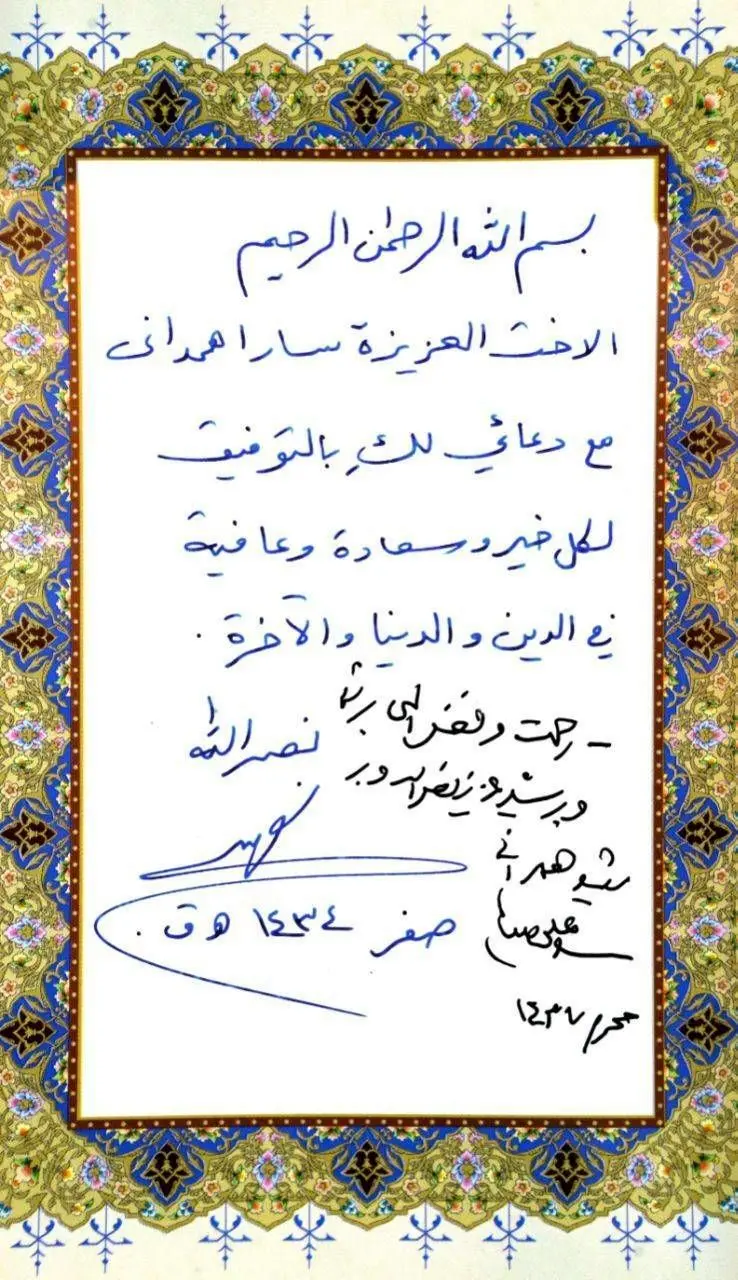 بسم الله الرحمن الرحيم
الاخت العزيزة سارا همدانى
مع دعائي لكِ بالتوفيق
لكل خير وسعادة وعافية
في الدين والدنيا والآخرة .
نصر الله
صفر ١٤٣٤ هـ ق .
ـ رحمت و فضل الهى بر شما
و بر شهید و بر
شهید همدانی
محرم ١٤٣٧